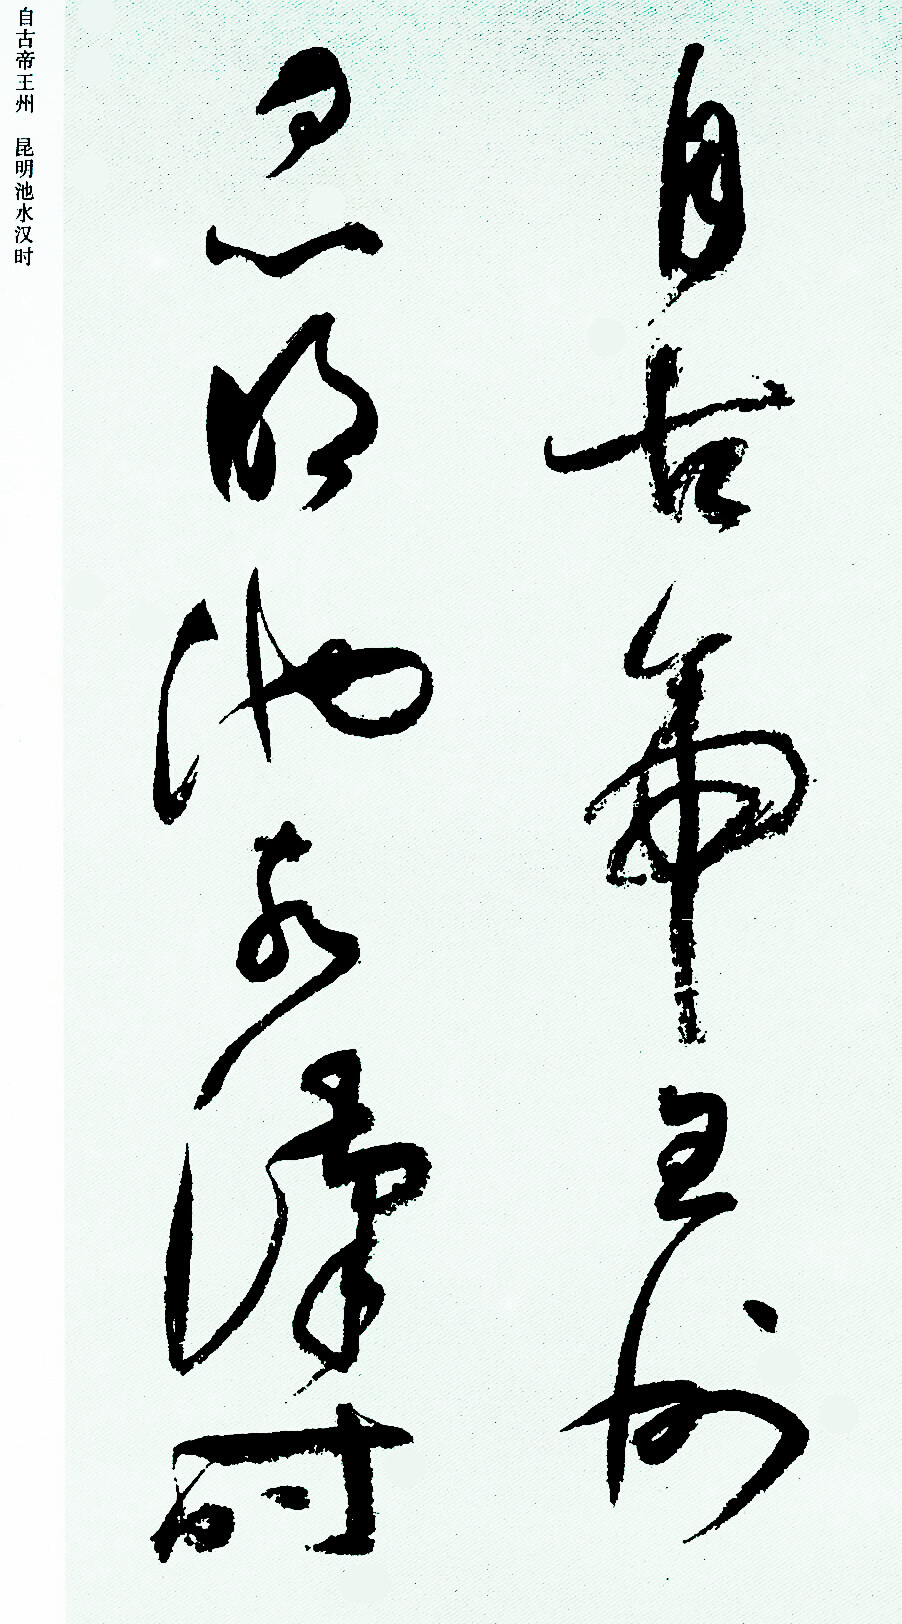 自古帝王州 昆明池水汉时
自古帝王州
昆明池水漢时